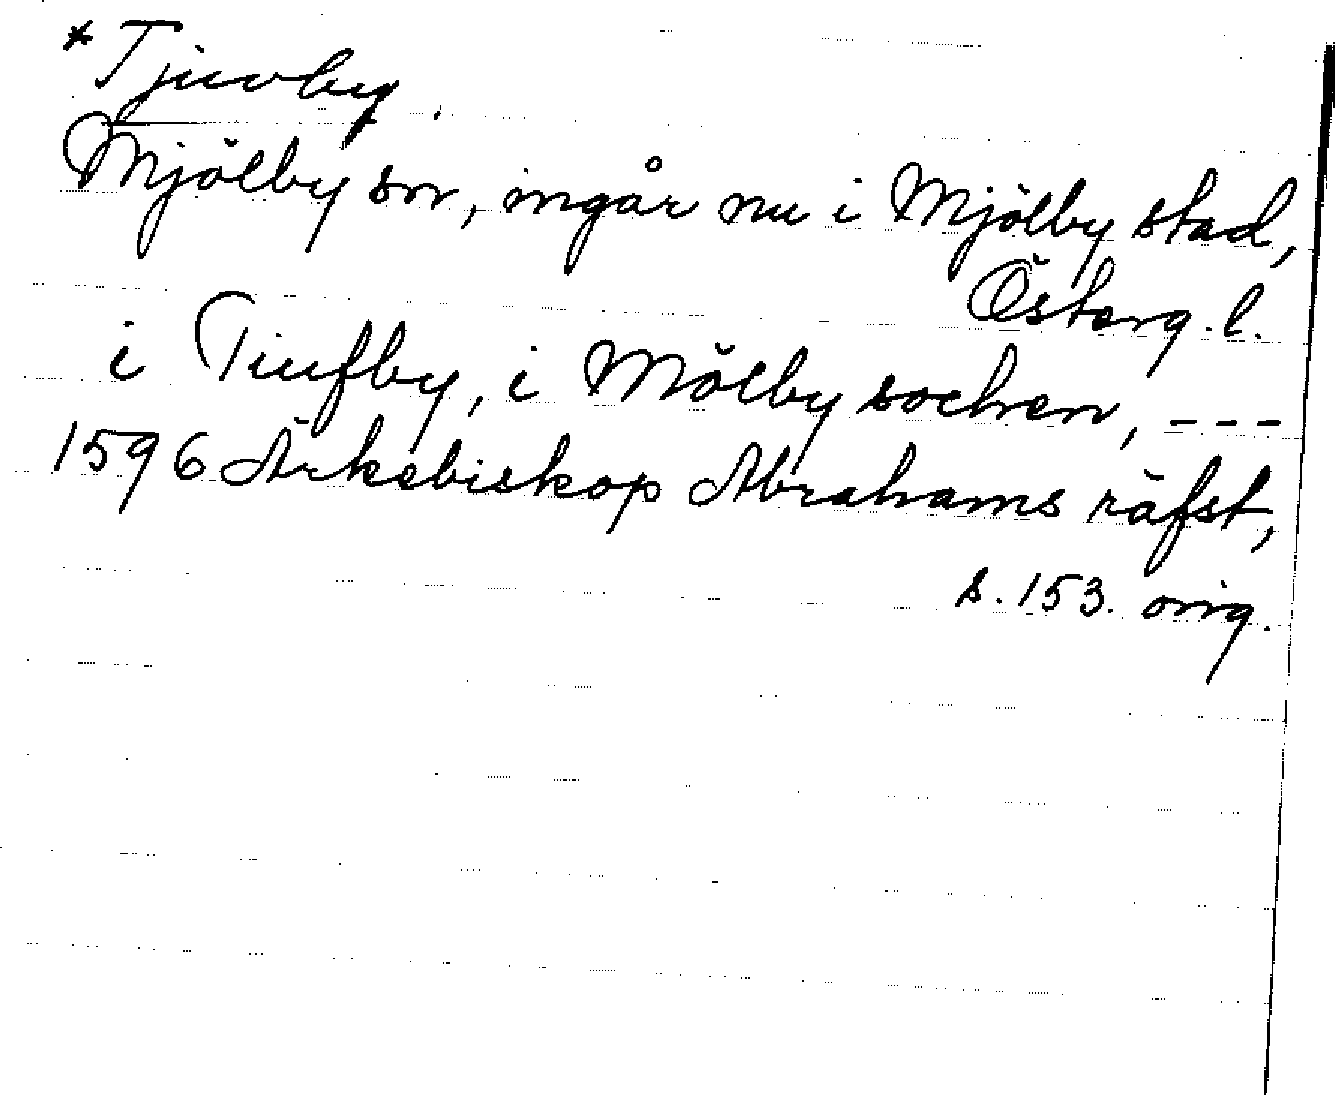 * Tjuvby.
Mjölby sn, ingår nu i Mjölby stad,
Österg. l.
i Tiufby, i Mölby sochen, ---
1596 Ärkebiskop Abrahams räfst,
s. 153. orig.